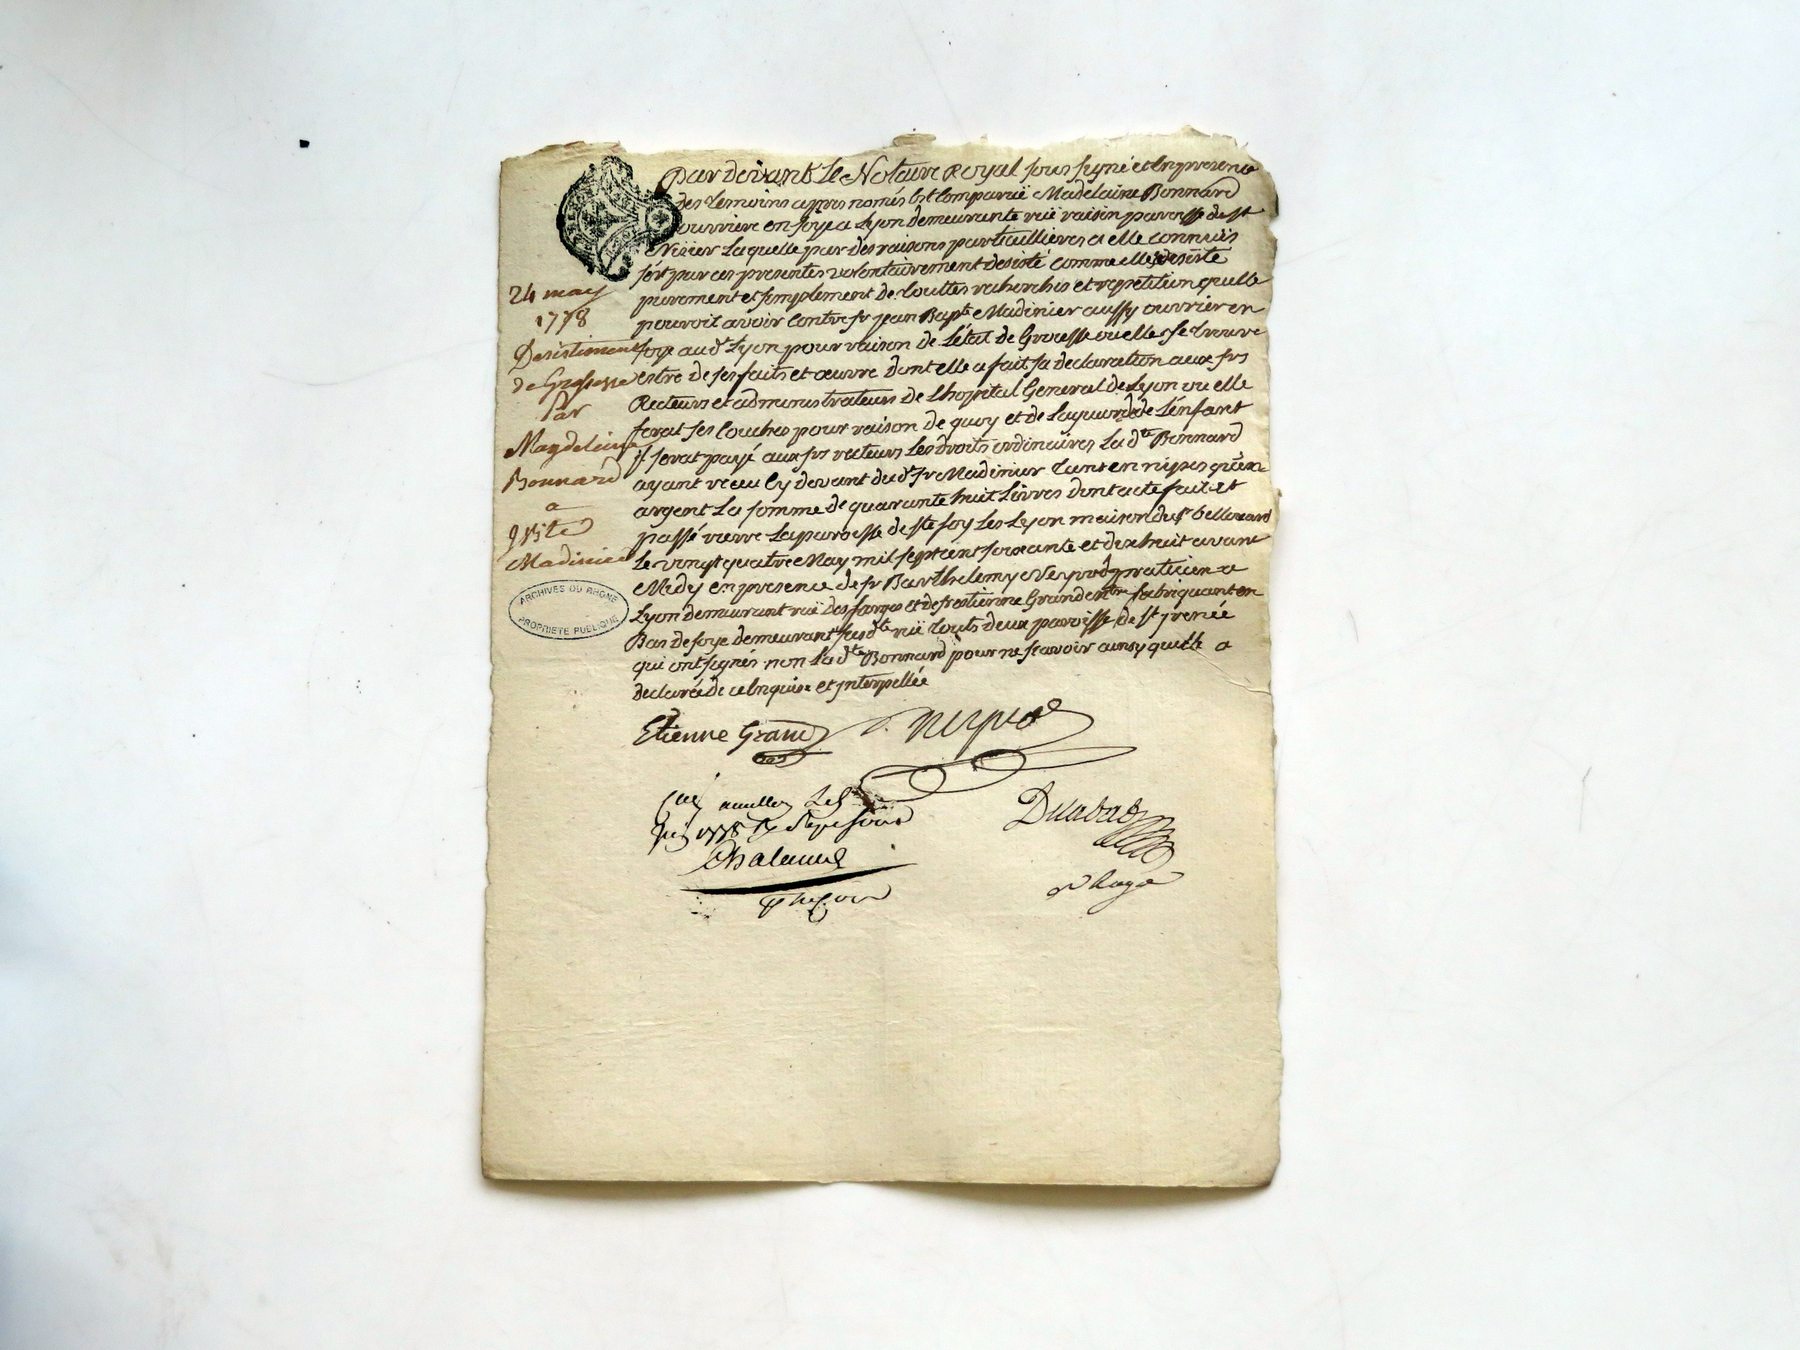 par devant Le Notaire Royal sous signé et En presence
des temoins apres només Est Comparüe Madelaine Bonnard
ouvriere en soye a Lyon demeurante rüe raisin paroisse de st
Nizier Laquelle par des raisons particullieres a elle connuës
s'est par ces presentes volontairement desisté comme elle se desiste
purement et simplement de touttes recherches et repetition quelle
pouroit avoir Contre sr jean Bapte Madinier aussy ouvrier en
soye aud Lyon pour raison de L'état de Grosesse ou elle se trouve
estre de ses faits et œuvre dont elle a fait sa declaration aux srs
Recteurs et administrateurs de Lhopital General de Lyon ou elle
ferat ses Couches pour raison de quoy et de La garde de L'enfant
il serat payé aux srs recteurs Les droits ordinaires La dte Bonnard
ayant recu Cy devant du d sr Madinier tant en nipes qu'en
argent La somme de quarante huit Livres dont acte fait et
passé riere La paroisse de ste foy Les Lyon maison du sr bellouard
Le vingt quatre May mil sept cent soixante et dix huit avant
Midy en presence de sr Barthelemy Neyrod praticien a
Lyon demeurant rüe des farges et de sr estienne Grand mtre fabriquant en
Bas de soye demeurant susdte rüe touts deux paroisse de st jrenée
qui ont signés non La dte Bonnard pour ne scavoir ainsy quelle a
declarée de ce Enquise et jnterpellée
24 may
1778
Desistiment
de Grossesse
Par
Magdelaine
Bonnard
a
Madinier
ARCHIVES DU RHONE
PROPRIETE PUBLIQUE
Etienne Grand
1778